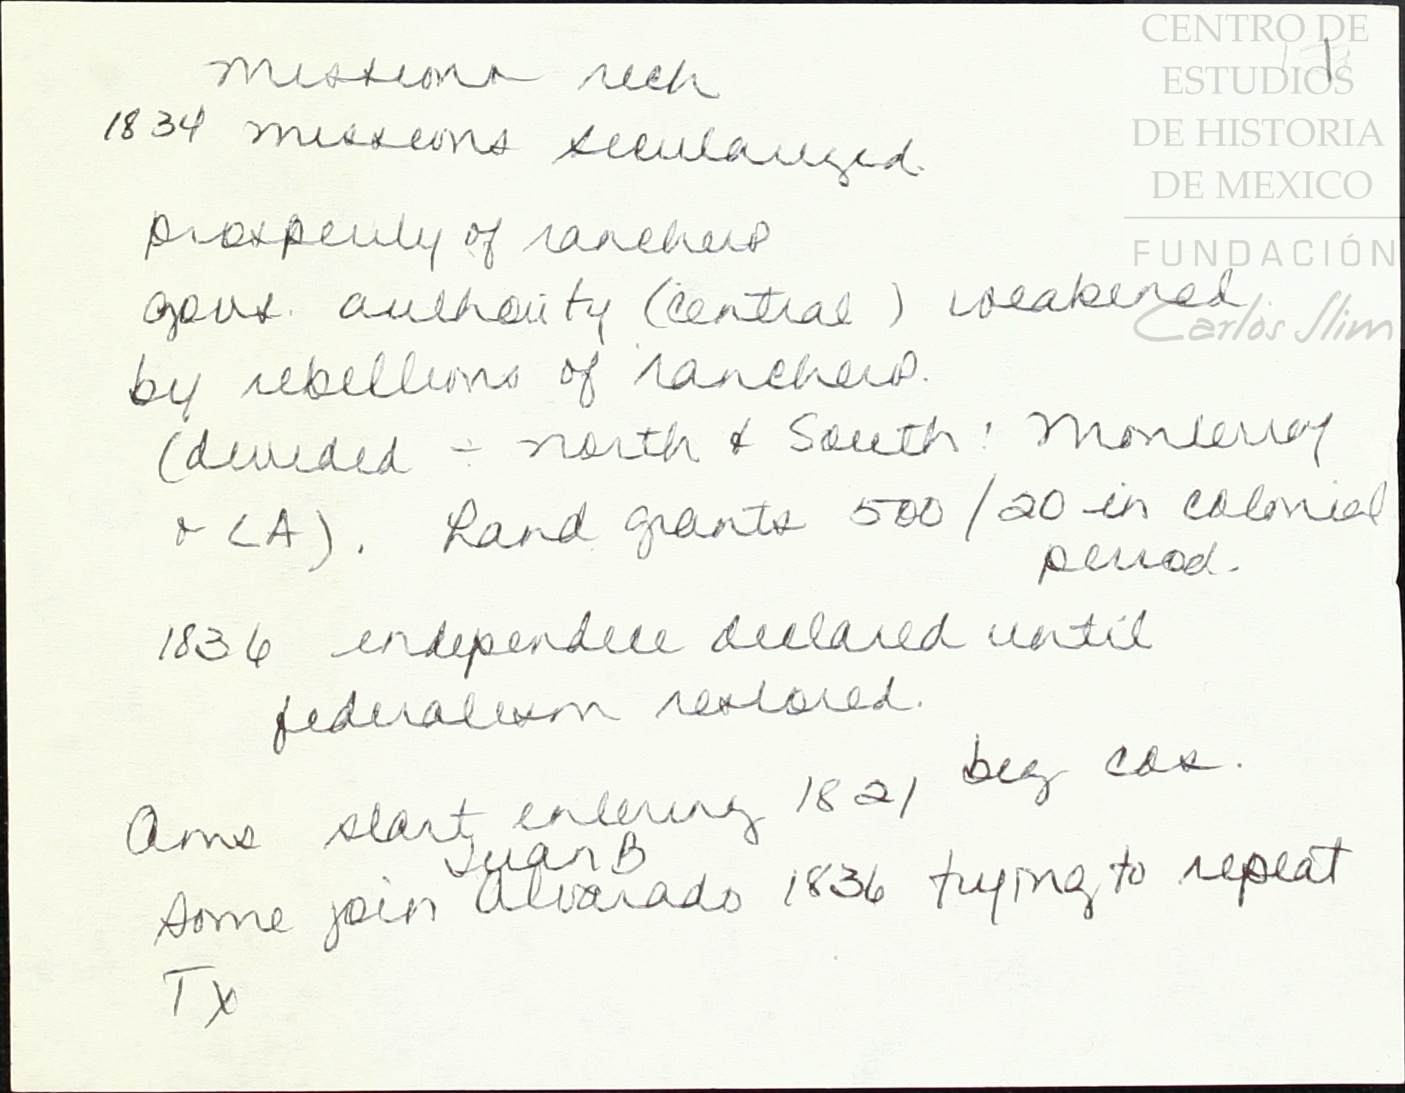 CENTRO DE
ESTUDIOS
DE HISTORIA
DE MEXICO
FUNDACIÓN
Carlos Slim
Missions rich
1834 missions secularized.
prosperity of ranchers
govt. authority (central) weakened
by rebellions of ranchers.
(divided ÷ north & South: Monterrey
& LA). Land grants 500/20 in colonial
period.
1836 independece declared until
federalism restored.
Ams start entering 1821 beg cos.
Juan B
Some join Alvarado 1836 trying to repeat
TX